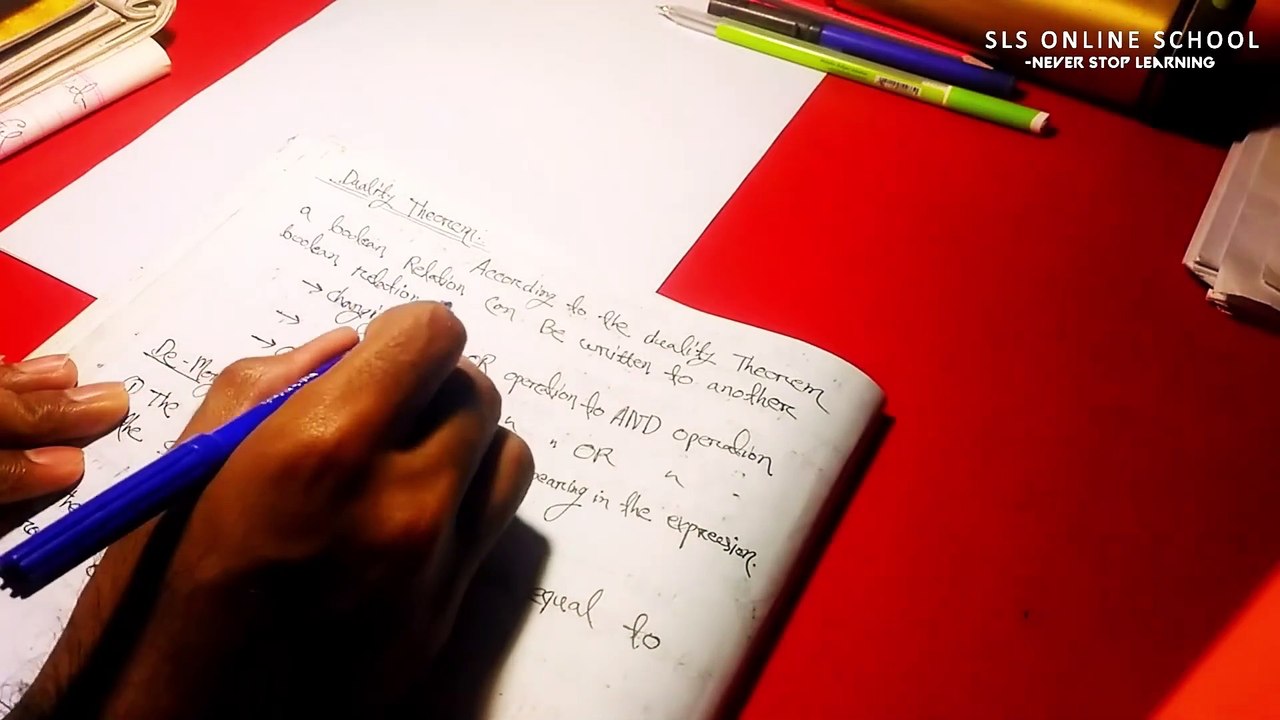 SLS ONLINE SCHOOL
-NEVER STOP LEARNING
Duality Theorem:
According to the duality Theorem
a boolean Relation Can Be written to another
boolean relation
→ changi OR operation to AND operation
→ " " OR " "
→ pearing in the expression.
De-Mor
① The equal to
the
the